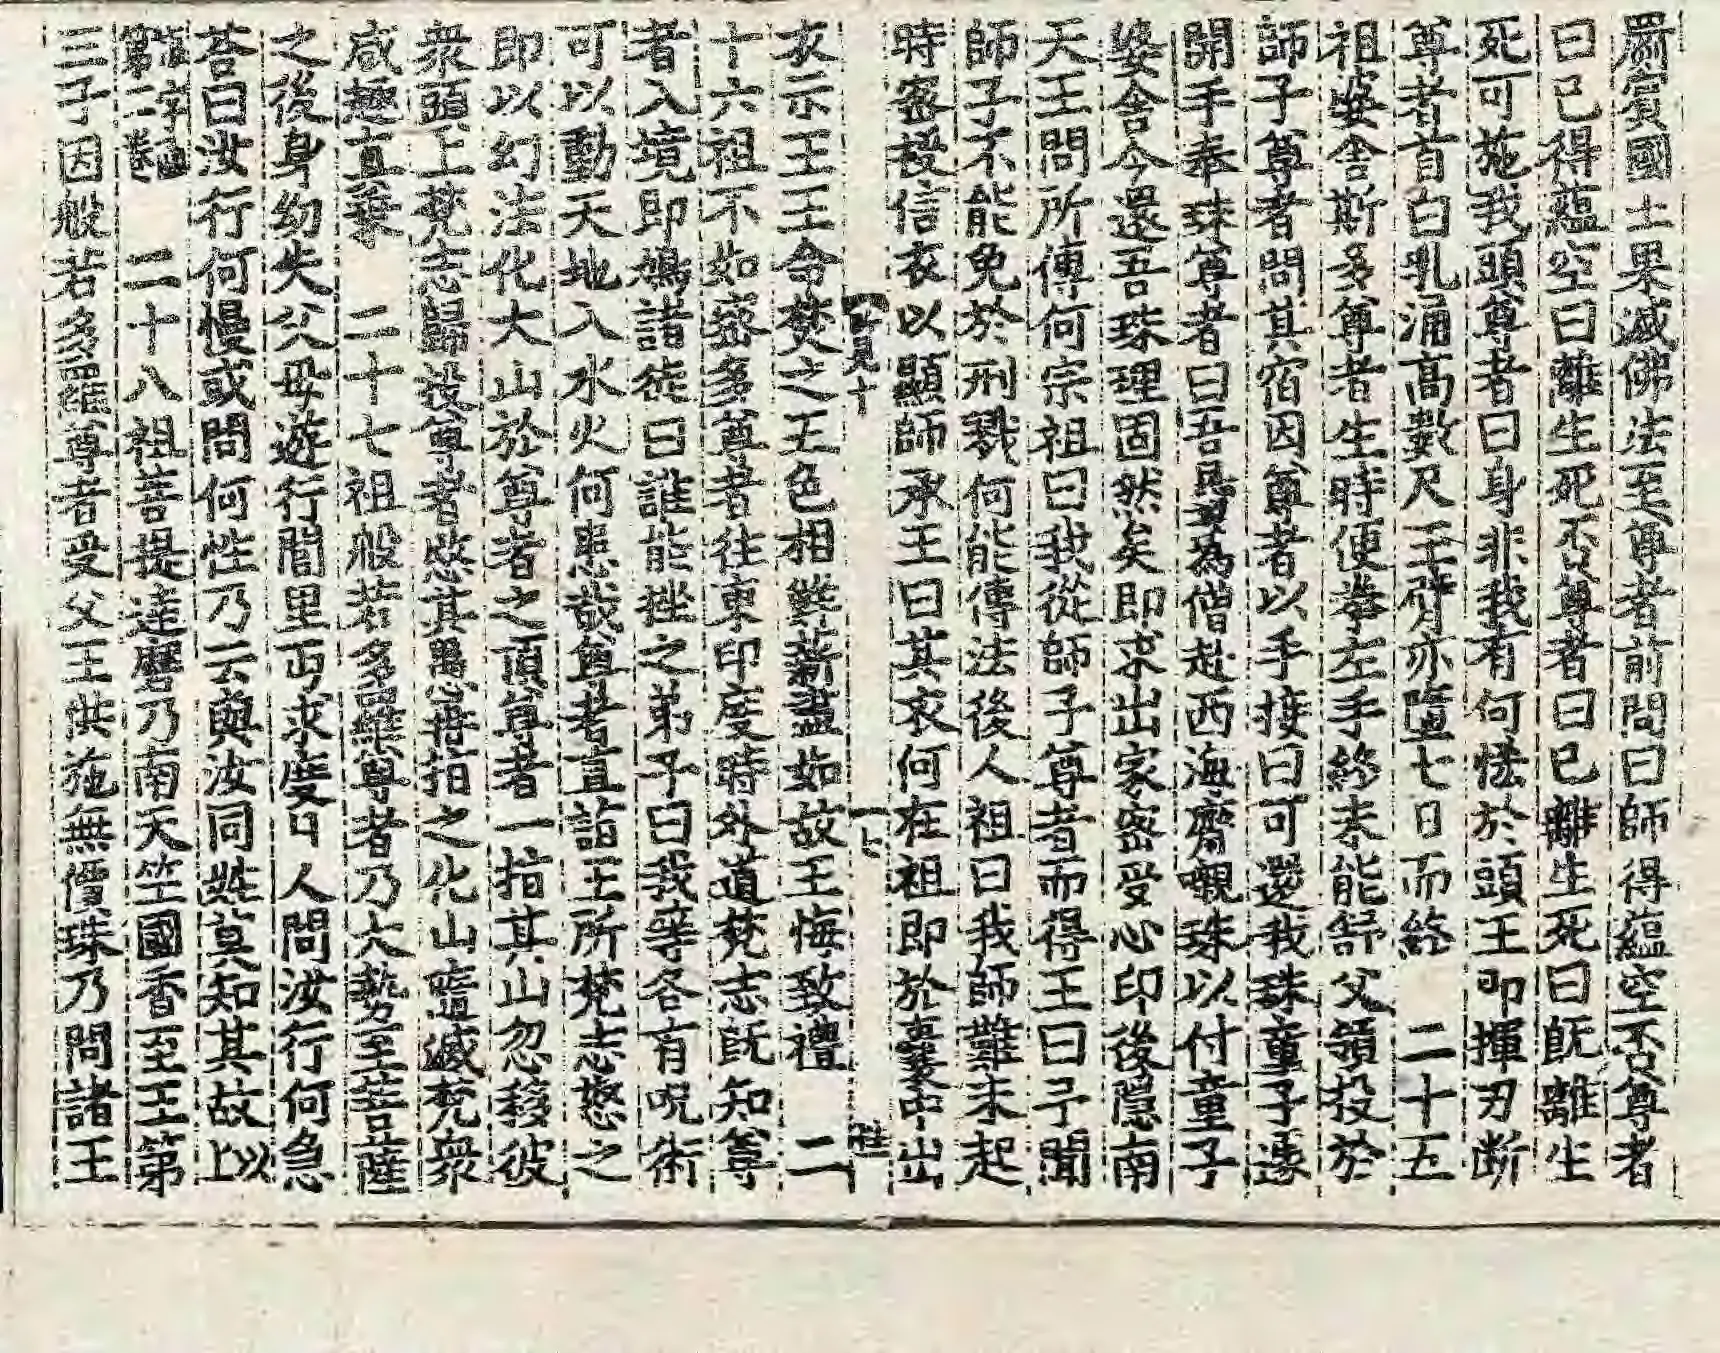 罽賓國王果滅佛法至尊者前問曰師得蘊空否尊者
曰已得蘊空曰離生死否尊者曰已離生死曰旣離生
死可施我頭尊者曰身非我有何恡於頭王即揮刃斷
尊者首白乳涌高數尺王臂亦墮七日而終　二十五
祖婆舍斯多尊者生時便拳左手終未能舒父領投於
師子尊者問其宿因尊者以手接曰可還我珠童子遽
開手奉珠尊者曰吾為僧赴西海齋嚫珠以付童子
婆舍今還吾珠理固然矣即求出家密受心印後隱南
天王問所傳何宗祖曰我從師子尊者而得王曰予聞
師子不能免於刑戮何能傳法後人祖曰我師難未起
時密授信衣以顯師承王曰其衣何在祖即於囊中出
衣示王王命焚之王色相射薪盡如故王悔致禮　二
十六祖不如密多尊者往東印度時外道梵志旣知尊
者入境即鳩諸徒曰誰能挫之弟子曰我等各有呪術
可以動天地入水火何患哉尊者直詣王所梵志慜之
即以幻法化大山於尊者之頭尊者一指其山忽移彼
衆頭上梵志歸投尊者愍其愚惑再指之化山隨滅梵衆
咸趣眞乘　二十七祖般若多羅尊者乃大勢至菩薩
之後身幼失父母遊行閭里丐求度日人問汝行何急
荅曰汝行何慢或問何性乃云與汝同性莫知其故上以
二十八祖菩提達磨乃南天竺國香至王第
三子因般若多羅尊者受父王供施無價珠乃問諸王